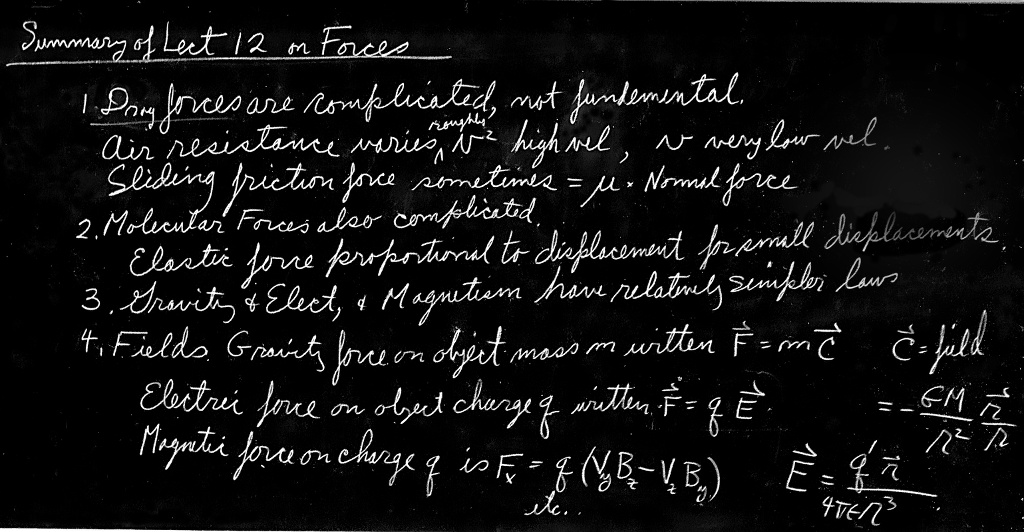 Summary of Lect 12 on Forces
1 Drag forces are complicated, not fundemental.
Air resistance varies, roughly v² high vel, v very low vel.
Sliding friction force sometimes = μ × Normal force
2. Molecular Forces also complicated.
Elastic force proportional to displacement for small displacements.
3. Gravity & Elect, & Magnetism have relatively simpler laws
4. Fields. Gravity force on object mass m written F⃗ = m C⃗ C⃗ = field
Electric force on object charge q written F⃗ = q E⃗. = - GM/r² r⃗/r
Magnetic force on charge q is Fx = q (VyBz - VzBy) E⃗ = q' r⃗ / 4πϵr³.
etc..